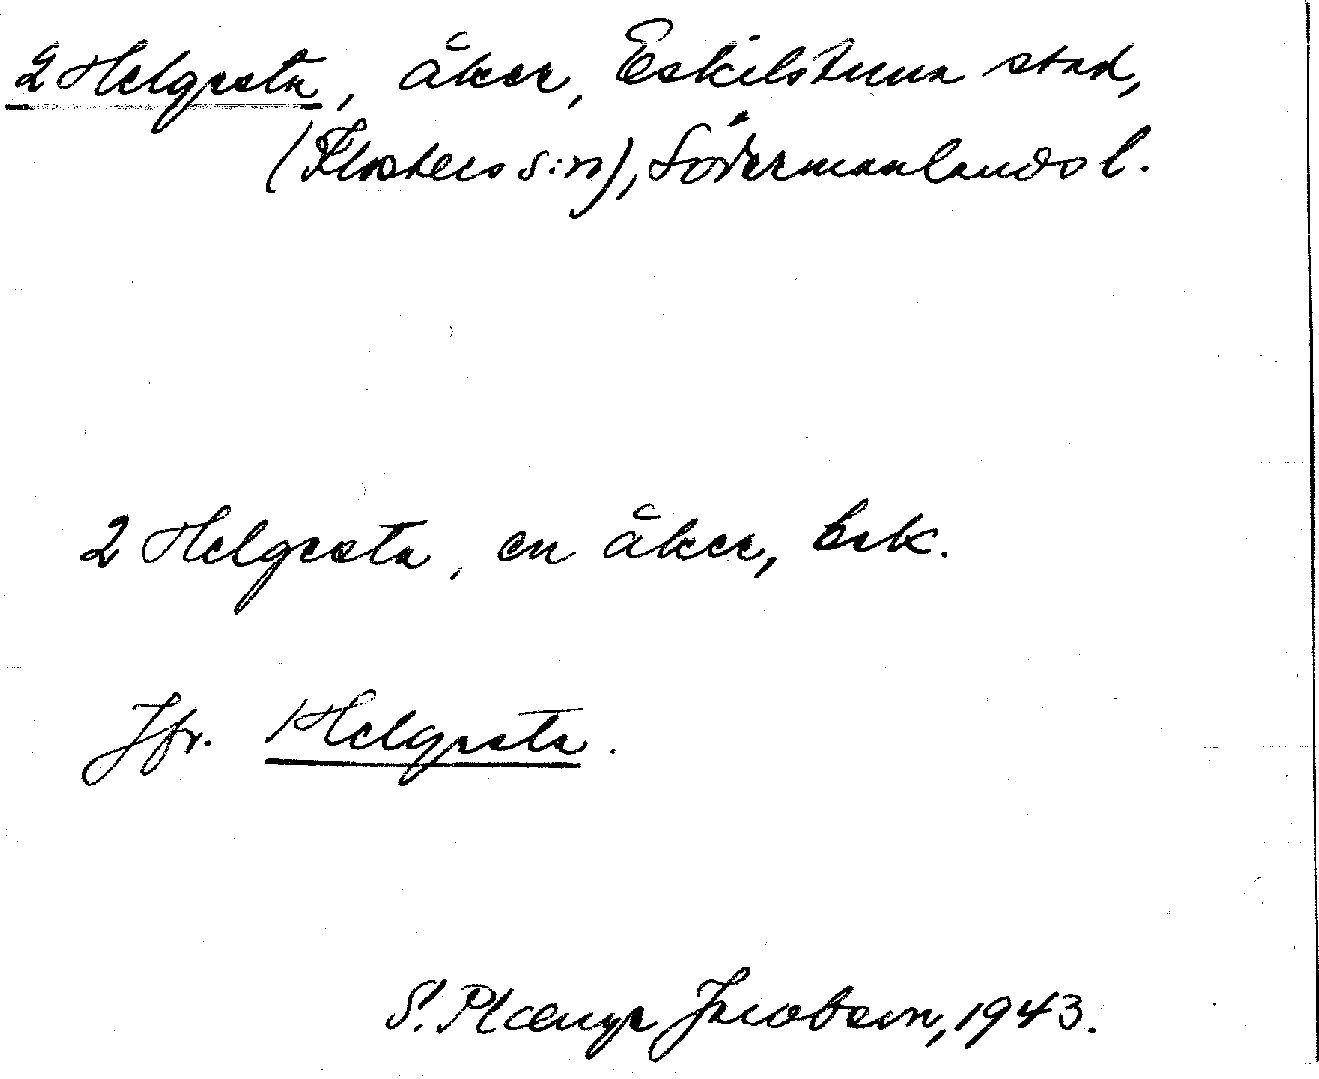 2 Helgesta, åker, Eskilstuna stad,
(Klosters s:n), Södermanlands l.
2 Helgesta, en åker, bek.
Jfr. 1 Helgesta.
S. Plœngr Jacobson, 1943.